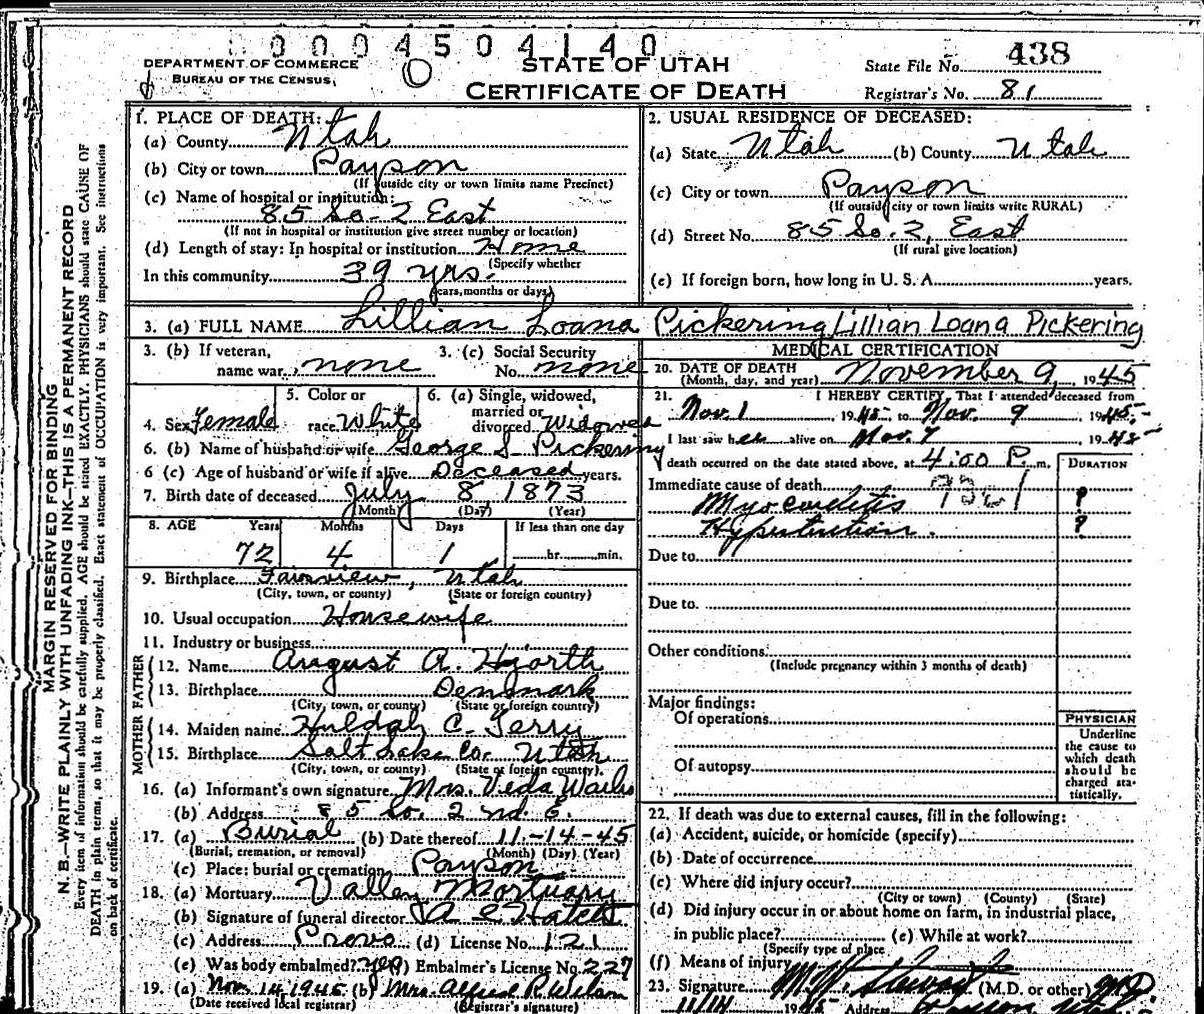 0004504140
DEPARTMENT OF COMMERCE
BUREAU OF THE CENSUS
STATE OF UTAH
CERTIFICATE OF DEATH
State File No. 438
Registrar's No. 81
MARGIN RESERVED FOR BINDING
N. B.—WRITE PLAINLY WITH UNFADING INK—THIS IS A PERMANENT RECORD
Every item of information should be carefully supplied. AGE should be stated EXACTLY. PHYSICIANS should state CAUSE OF
DEATH in plain terms, so that it may be properly classified. Exact statement of OCCUPATION is very important. See instructions
on back of certificate.
1. PLACE OF DEATH:
(a) County Utah
(b) City or town Payson
(If outside city or town limits name Precinct)
(c) Name of hospital or institution:
85 So- 2 East
(If not in hospital or institution give street number or location)
(d) Length of stay: In hospital or institution Home
(Specify whether
In this community 39 yrs.
years, months or days)
2. USUAL RESIDENCE OF DECEASED:
(a) State Utah (b) County Utah
(c) City or town Payson
(If outside city or town limits write RURAL)
(d) Street No. 85 So. 2 East
(If rural give location)
(e) If foreign born, how long in U. S. A. years.
3. (a) FULL NAME Lillian Loana Pickering Lillian Loana Pickering
3. (b) If veteran,
name war none
3. (c) Social Security
No. none
4. Sex Female
5. Color or
race White
6. (a) Single, widowed,
married or
divorced Widowed
6. (b) Name of husband or wife George S Pickering
6 (c) Age of husband or wife if alive Deceased years.
7. Birth date of deceased July 8, 1873
(Month) (Day) (Year)
8. AGE Years Months Days If less than one day
72 4 1 hr. min.
9. Birthplace Fairview, Utah
(City, town, or county) (State or foreign country)
10. Usual occupation Housewife
11. Industry or business
FATHER
12. Name August A. Hjorth
13. Birthplace Denmark
(City, town, or county) (State or foreign country)
MOTHER
14. Maiden name Huldah C. Terry
15. Birthplace Salt Lake Co. Utah
(City, town, or county) (State or foreign country).
16. (a) Informant's own signature Mrs. Veda
(b) Address 85 So. 2nd. E.
17. (a) Burial (b) Date thereof 11-14-45
(Burial, cremation, or removal) (Month) (Day) (Year)
(c) Place: burial or cremation Payson
18. (a) Mortuary Valley Mortuary
(b) Signature of funeral director A E Hatch
(c) Address Provo (d) License No. 121
(e) Was body embalmed? yes Embalmer's License No. 227
19. (a) Nov. 14 1945 (b) Mrs. Alfred P. Wilson
(Date received local registrar) (Registrar's signature)
MEDICAL CERTIFICATION
20. DATE OF DEATH
(Month, day, and year) November 9, 1945
21. I HEREBY CERTIFY, That I attended deceased from
Nov. 1 1945 to Nov. 9, 1945
I last saw her alive on Nov. 7 1945
death occurred on the date stated above, at 4:00 P. m.
DURATION
Immediate cause of death
Myocarditis ?
Hypertention. ?
Due to
Due to
Other conditions
(Include pregnancy within 3 months of death)
Major findings:
Of operations
Of autopsy
PHYSICIAN
Underline
the cause to
which death
should be
charged sta-
tistically.
22. If death was due to external causes, fill in the following:
(a) Accident, suicide, or homicide (specify)
(b) Date of occurrence
(c) Where did injury occur?
(City or town) (County) (State)
(d) Did injury occur in or about home on farm, in industrial place,
in public place? (e) While at work?
(Specify type of place
(f) Means of injury
23. Signature M. H. Stewart (M.D. or other) M.D.
11/14 1945 Address Payson Utah